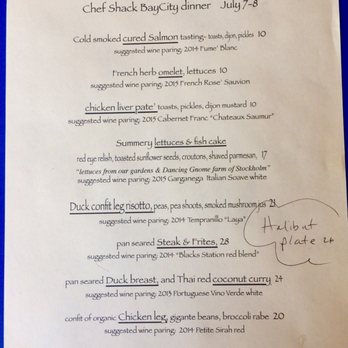 Chef Shack BayCity dinner July 7-8
Cold smoked cured Salmon tasting- toasts, dijon, pickles 10
suggested wine paring: 2014 Fume' Blanc
French herb omelet, lettuces 10
suggested wine paring: 2015 French Rose' Sauvion
chicken liver pate' toasts, pickles, dijon mustard 10
suggested wine paring: 2015 Cabernet Franc "Chateaux Saumur"
Summery lettuces & fish cake
red eye relish, toasted sunflower seeds, croutons, shaved parmesan, 17
"lettuces from our gardens & Dancing Gnome farm of Stockholm"
suggested wine paring: 2015 Garganega Italian Soave white
Duck confit leg risotto, peas, pea shoots, smoked mushroom jus 23
suggested wine paring: 2014 Tempranillo "Laya"
Halibut
plate 24
pan seared Steak & Frites, 28
suggested wine paring: 2014 "Blacks Station red blend"
pan seared Duck breast, and Thai red coconut curry 24
suggested wine paring: 2013 Portuguese Vino Verde white
confit of organic Chicken leg, gigante beans, broccoli rabe 20
suggested wine paring: 2014 Petite Sirah red